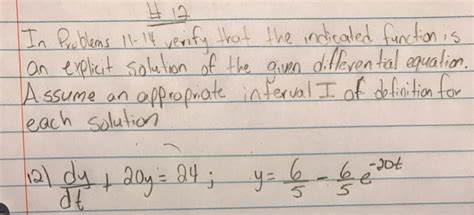 # 12
In Problems 11-14 verify that the indicated function is
an explicit solution of the given differential equation.
Assume an appropriate interval I of definition for
each solution
12) dy/dt + 20y = 24 ; y = 6/5 - 6/5 e^-20t